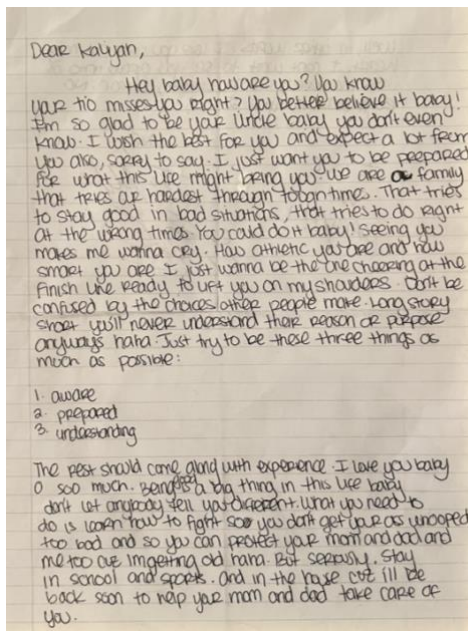 Dear Kaliyah,
Hey baby how are you? You know
your tio misses you right? You better believe it baby!
I'm so glad to be your Uncle baby you don't even
know. I wish the best for you and expect a lot from
you also, sorry to say. I just want you to be prepared
for what this life might bring you. We are a family
that tries our hardest through tough times. That tries
to stay good in bad situations, that tries to do right
at the wrong times. You could do it baby! Seeing you
makes me wanna cry. How athletic you are and how
smart you are I just wanna be the one cheering at the
finish line ready to lift you on my shoulders. Don't be
confused by the choices other people make. Long story
short you'll never understand their reason or purpose
anyways haha. Just try to be these three things as
much as possible:
1. aware
2. prepared
3. understanding
The rest should come along with experience. I love you baby
soo much. Being a big thing in this life baby
don't let anybody tell you different. What you need to
do is learn how to fight soo you don't get your as whooped
too bad and so you can protect your mom and dad and
me too cuz im getting old haha. But seriously. Stay
in school and sports. And in the house cuz ill be
back soon to help your mom and dad take care of
you.